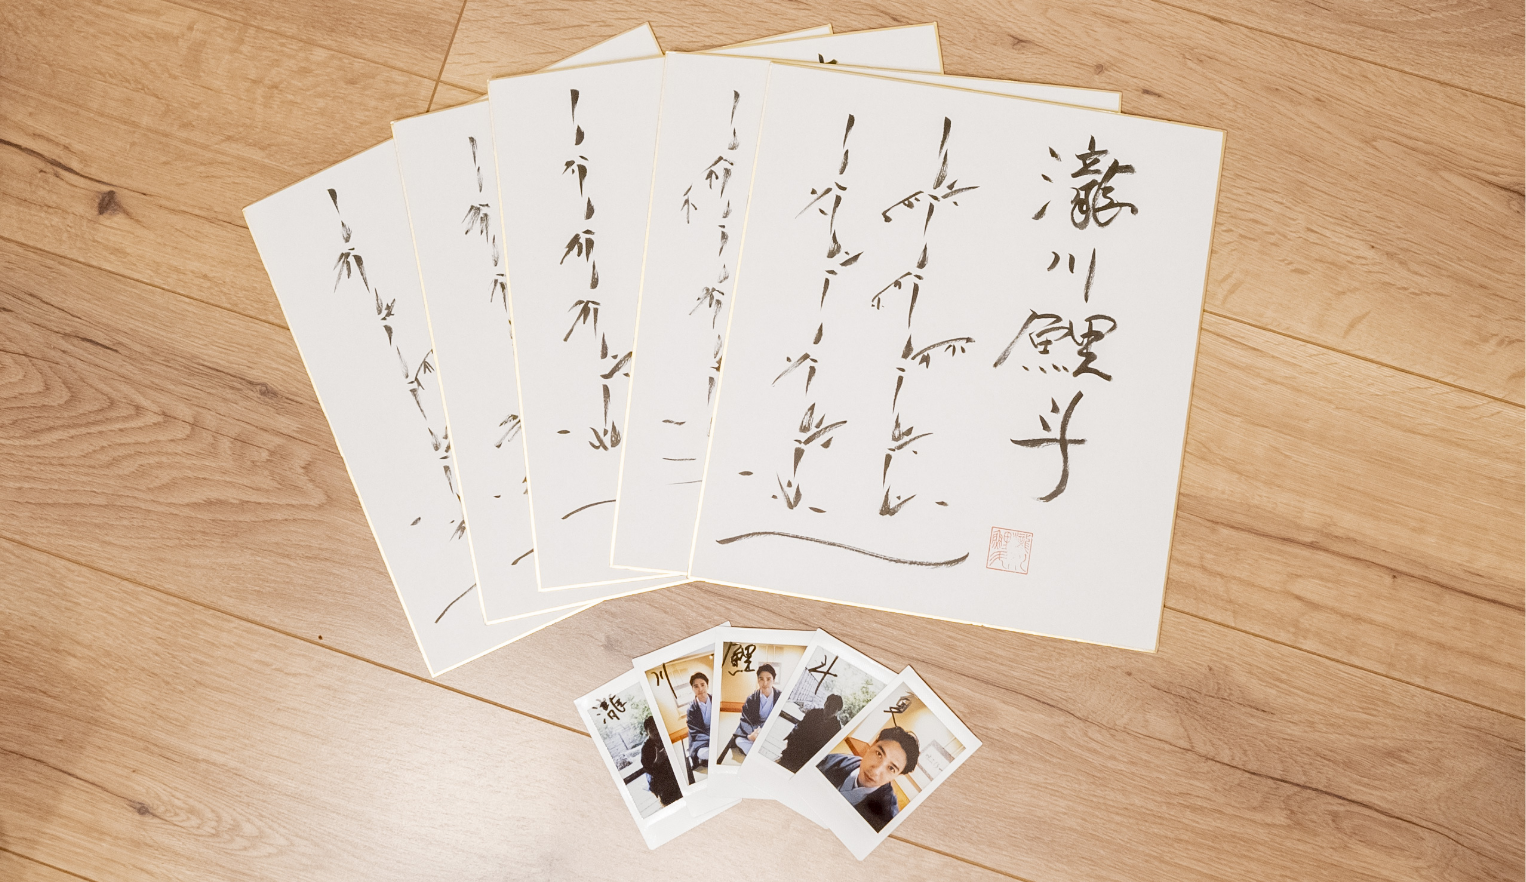 瀧川鯉斗
瀧
川
鯉
斗